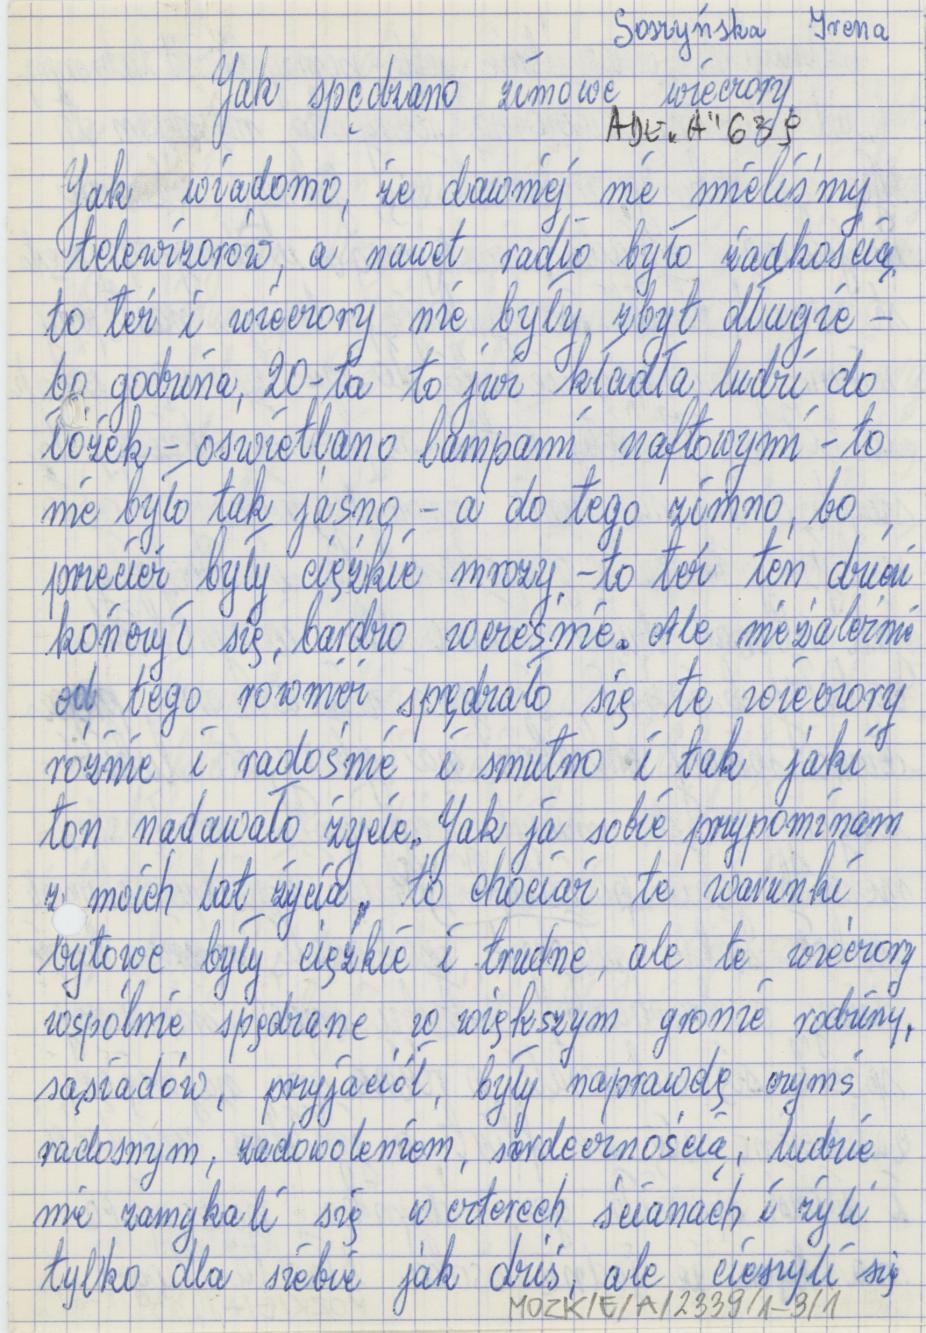 Soszyńska Irena
Jak spędzano zimowe wieczory
ADE. "A" 639
Jak wiadomo, że dawniej nie mieliśmy
telewizorów, a nawet radio było żadkością
to też i wieczory nie były zbyt długie -
bo godzina, 20-ta to już kładła ludzi do
łóżek - oswietlano lampami naftowymi - to
nie było tak jasno - a do tego zimno, bo
przecież były ciężkie mrozy, - to też ten dzień
kończył się, bardzo wcześnie. Ale niezależnie
od tego również spędzało się te wieczory
różnie i radośnie i smutno i tak jaki
ton nadawało życie. Jak ja sobie przypominam
z moich lat życia, to chociaż te warunki
bytowe były ciężkie i trudne, ale te wieczory
wspólnie spędzane w większym gronie rodziny,
sąsiadów, przyjaciół, były naprawdę czymś
radosnym, zadowoleniem, serdecznością, ludzie
nie zamykali się w czterech ścianach i żyli
tylko dla siebie jak dziś, ale cieszyli się
MOZK/E/A/2339/1-3/1